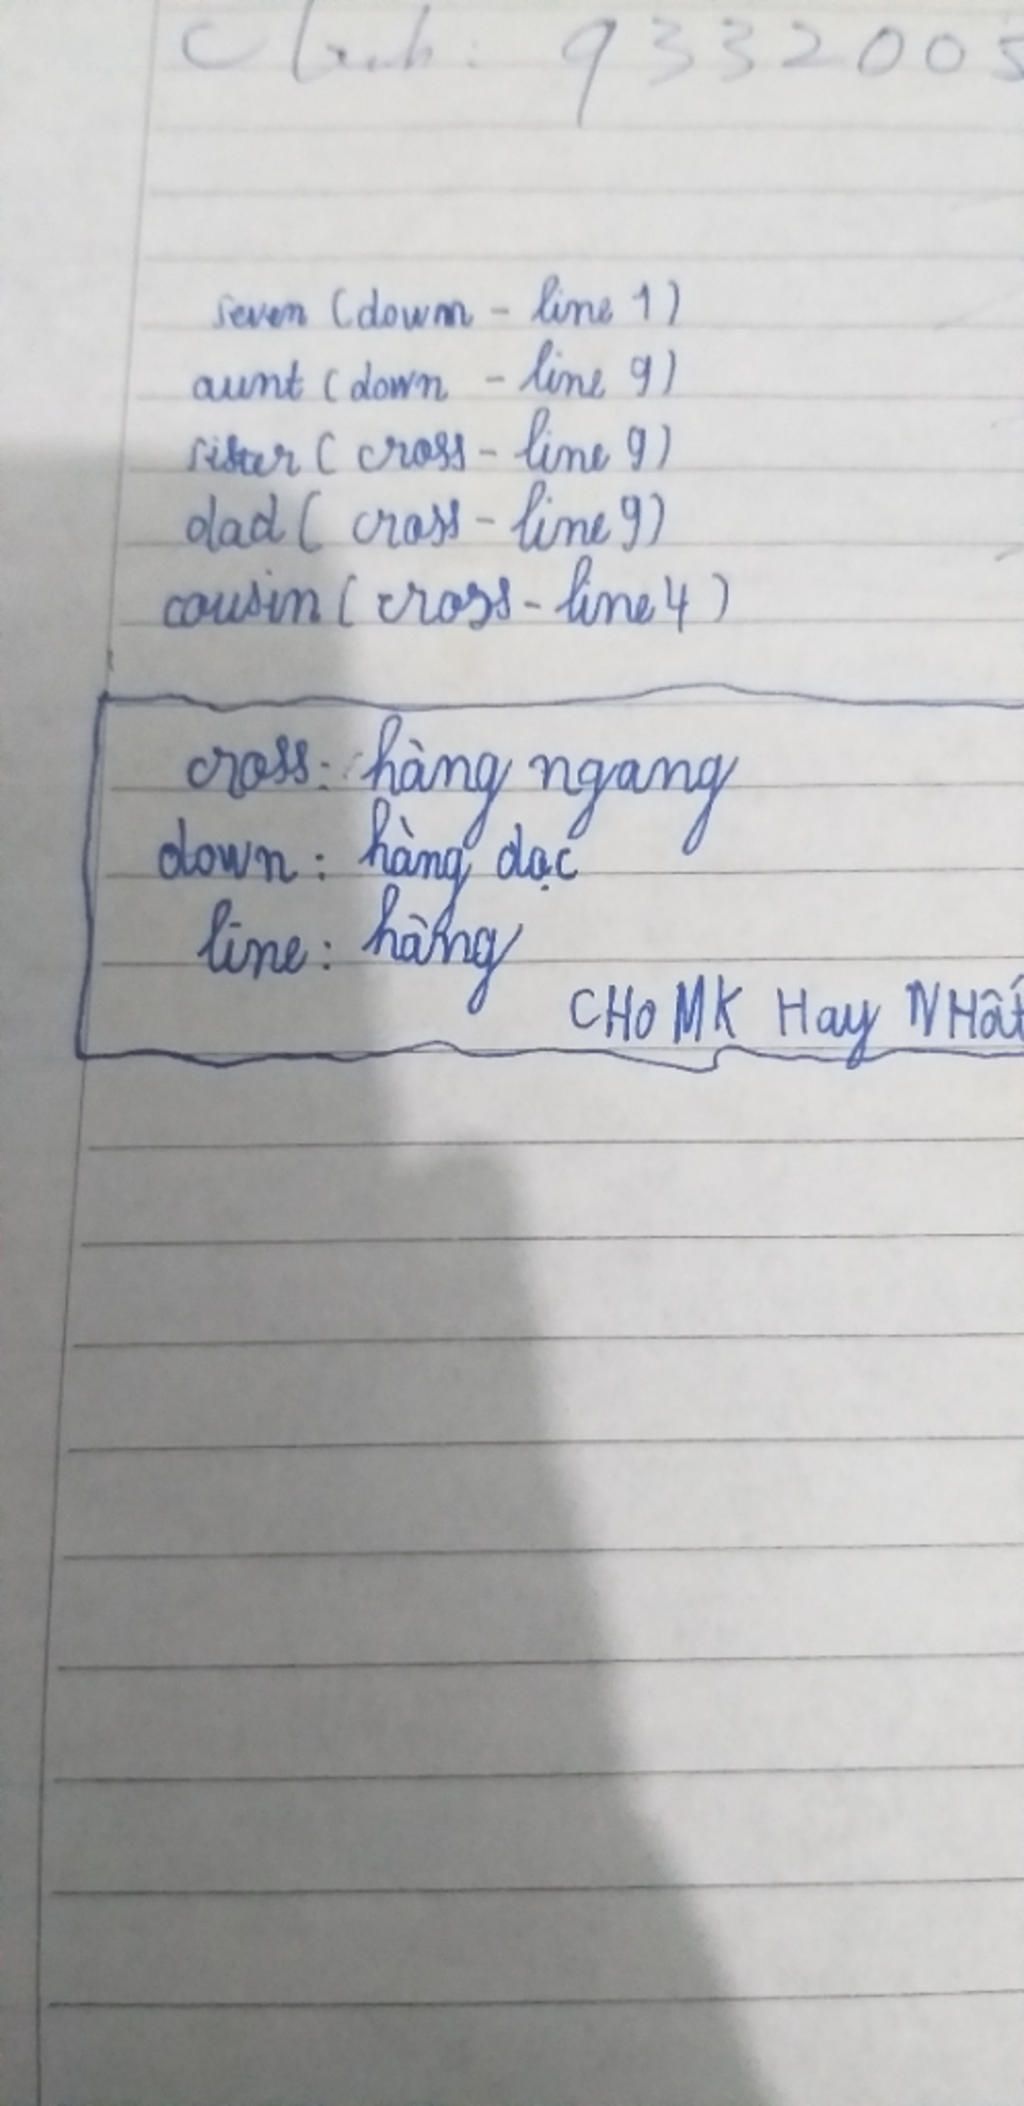 9332005
seven (down - line 1)
aunt (down - line 9)
sister ( cross - line 9)
dad ( cross - line 9)
cousin ( cross - line 4 )
cross: hàng ngang
down: hàng dọc
line: hàng
CHO MK Hay NHất